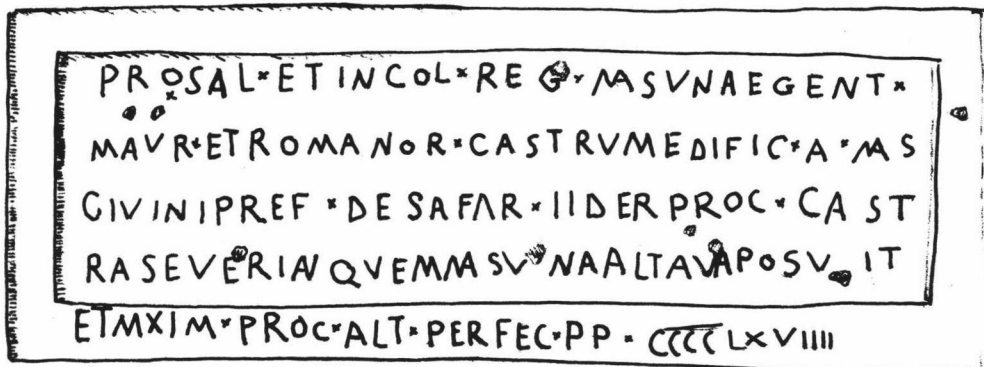 PRO SAL × ET INCOL × REG × MASVNAE GENT ×
MAVR × ET ROMANOR × CASTRVM EDIFIC × A × MAS
GIVINI PREF × DE SAFAR × IIDER PROC × CAST
RA SEVERIAN QVEM MASVNA ALTAVA POSVIT
ET MXIM × PROC × ALT × PERFEC × PP × CCCCLXVIIII